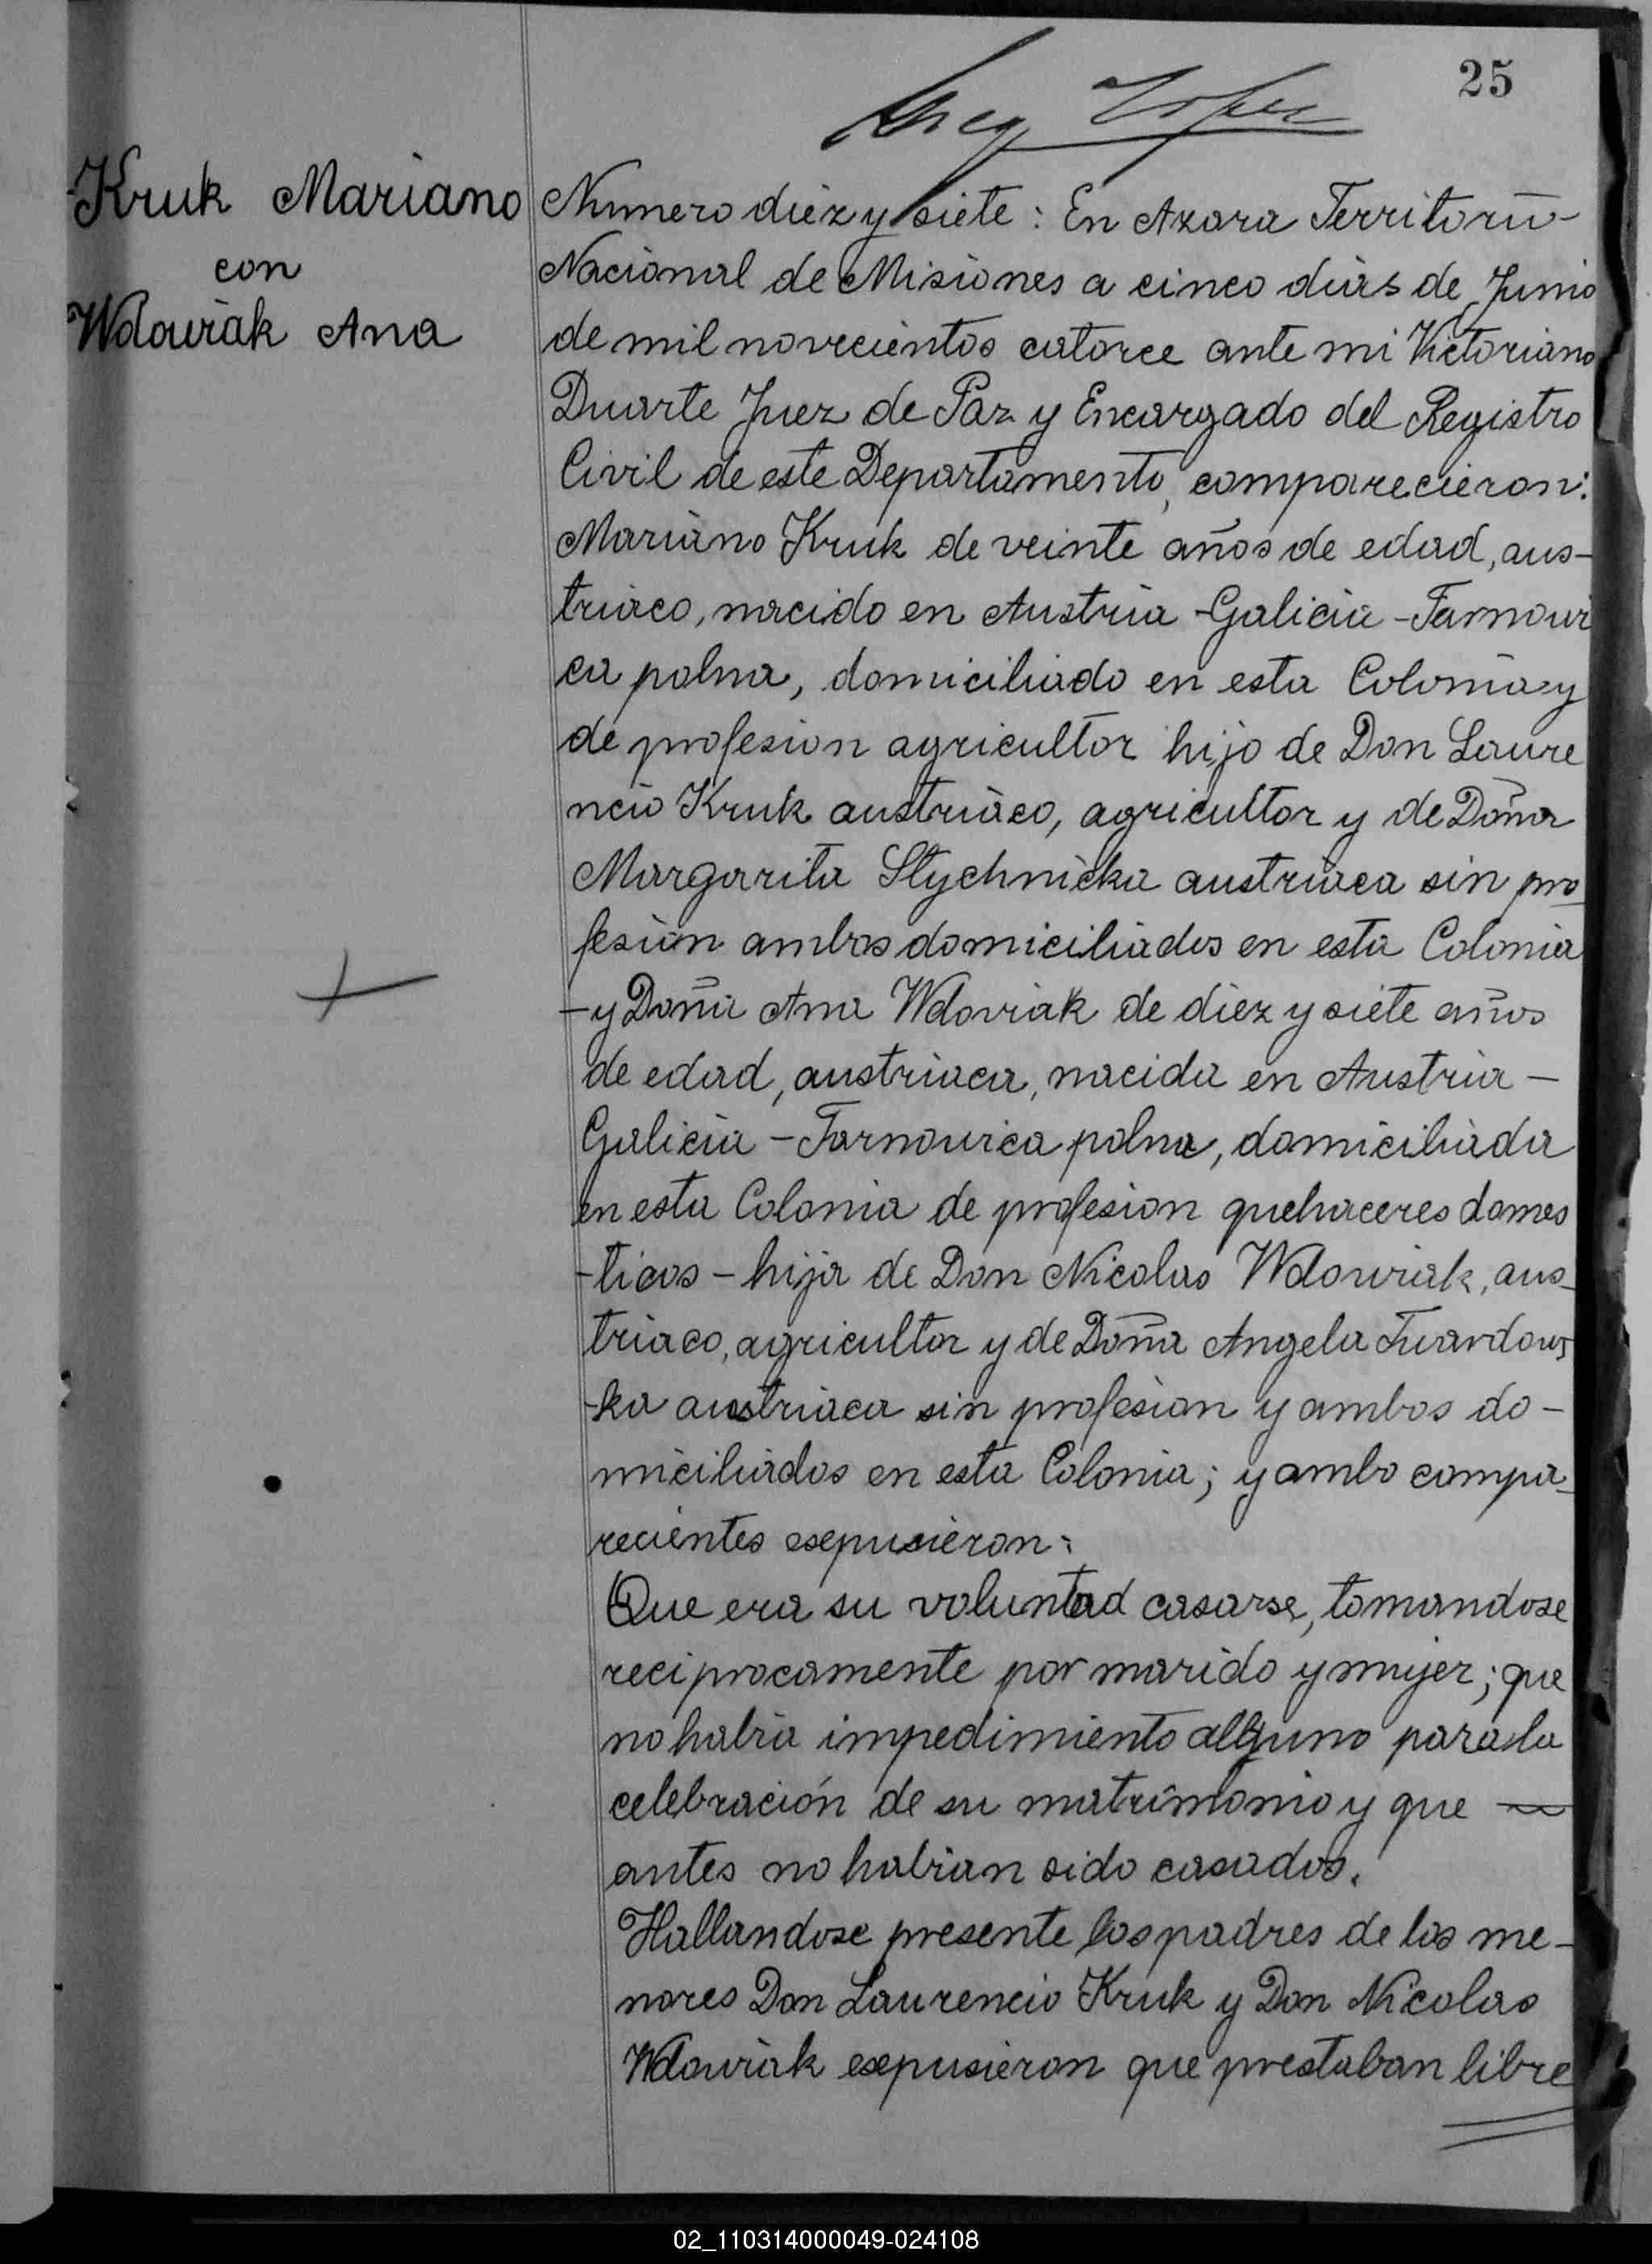 25
Kruk Mariano
con
Wdowiak Ana
Numero diez y siete: En Azara Territorio
Nacional de Misiones a cinco dias de Junio
de mil novecientos catorce ante mi Victoriano
Duarte Juez de Paz y Encargado del Registro
Civil de este Departamento, comparecieron:
Mariano Kruk de veinte años de edad, aus-
triaco, nacido en Austria - Galicia - Tarnowi
ca polna, domiciliado en esta Colonia y
de profesion agricultor hijo de Don Laure
ncio Kruk austriaco, agricultor y de Doña
Margarita Stychnicka austriaca sin pro
fesion ambos domiciliados en esta Colonia
- y Doña Ana Wdoviak de diez y siete años
de edad, austriaca, nacida en Austria -
Galicia - Tarnowica polna, domiciliada
en esta Colonia de profesion quehaceres domes
-ticos - hija de Don Nicolas Wdowiak, aus-
triaco, agricultor y de Doña Angela Twardows
-ka austriaca sin profesion y ambos do-
miciliados en esta Colonia; y ambo compa-
recientes esepusieron:
Que era su voluntad casarse, tomandose
reciprocamente por marido y mujer; que
no habia impedimiento alguno para la
celebración de su matrimonio y que
antes no habian sido casados.
Hallandose presente los padres de los me-
nores Don Laurencio Kruk y Don Nicolas
Wdowiak esepusieron que prestaban libre
02_110314000049-024108